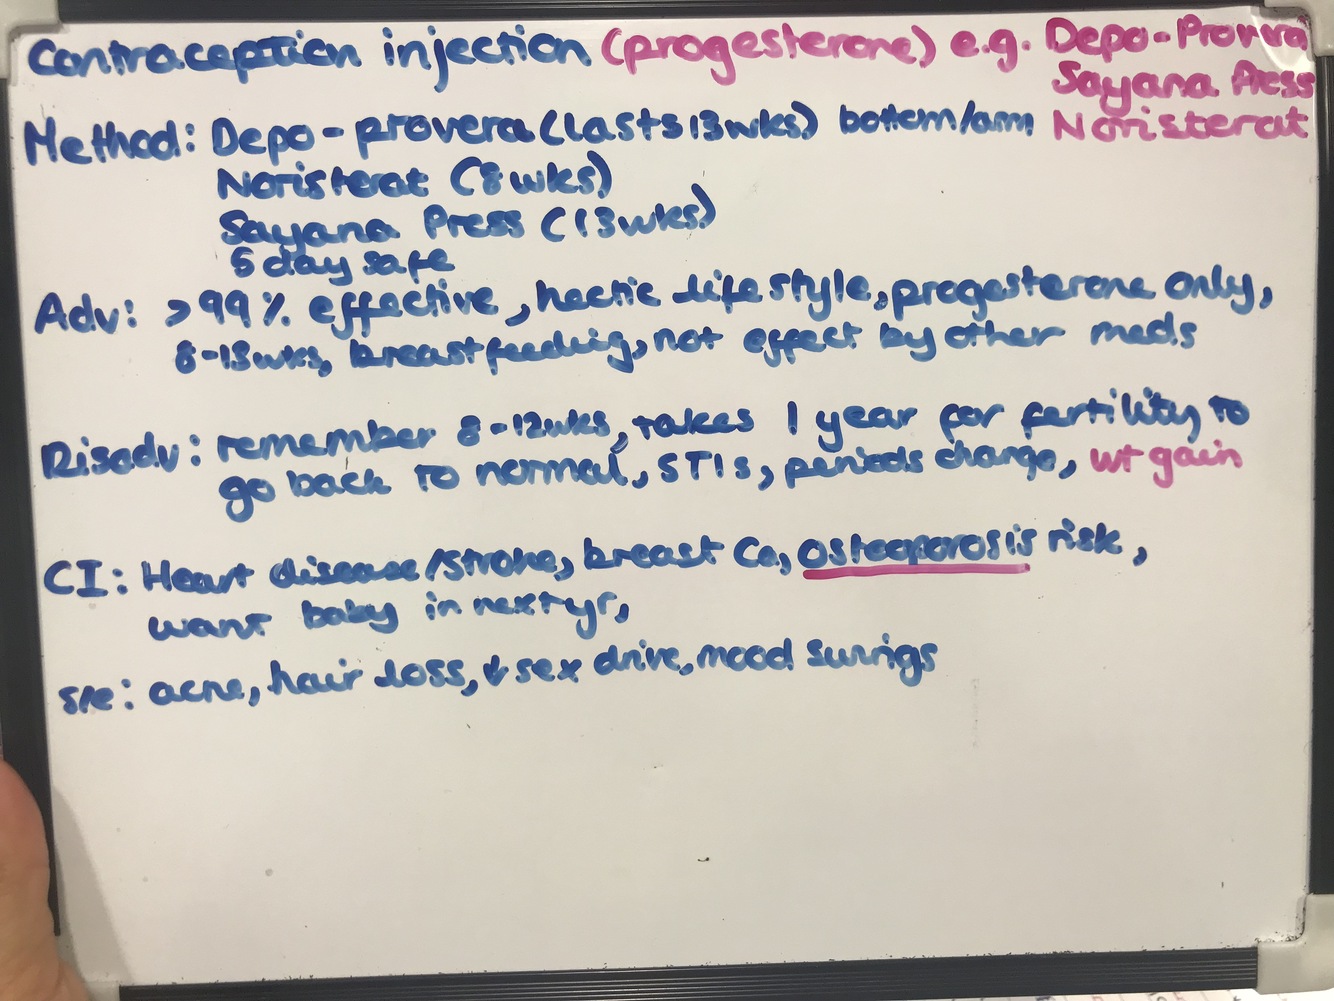 Contraception injection (progesterone) e.g. Depo-Provera
Sayana Press
Noristerat
Method: Depo-provera (lasts 13wks) bottom/arm
Noristerat (8wks)
Sayana Press (13wks)
5 day safe
Adv: >99% effective, hectic lifestyle, progesterone only,
8-13wks, breastfeeding, not effect by other meds
Disadv: remember 8-12wks, takes 1 year for fertility to
go back to normal, STIs, periods change, wt gain
CI: Heart disease/stroke, breast Ca, Osteoporosis risk,
want baby in next yr,
s/e: acne, hair loss, ↓ sex drive, mood swings